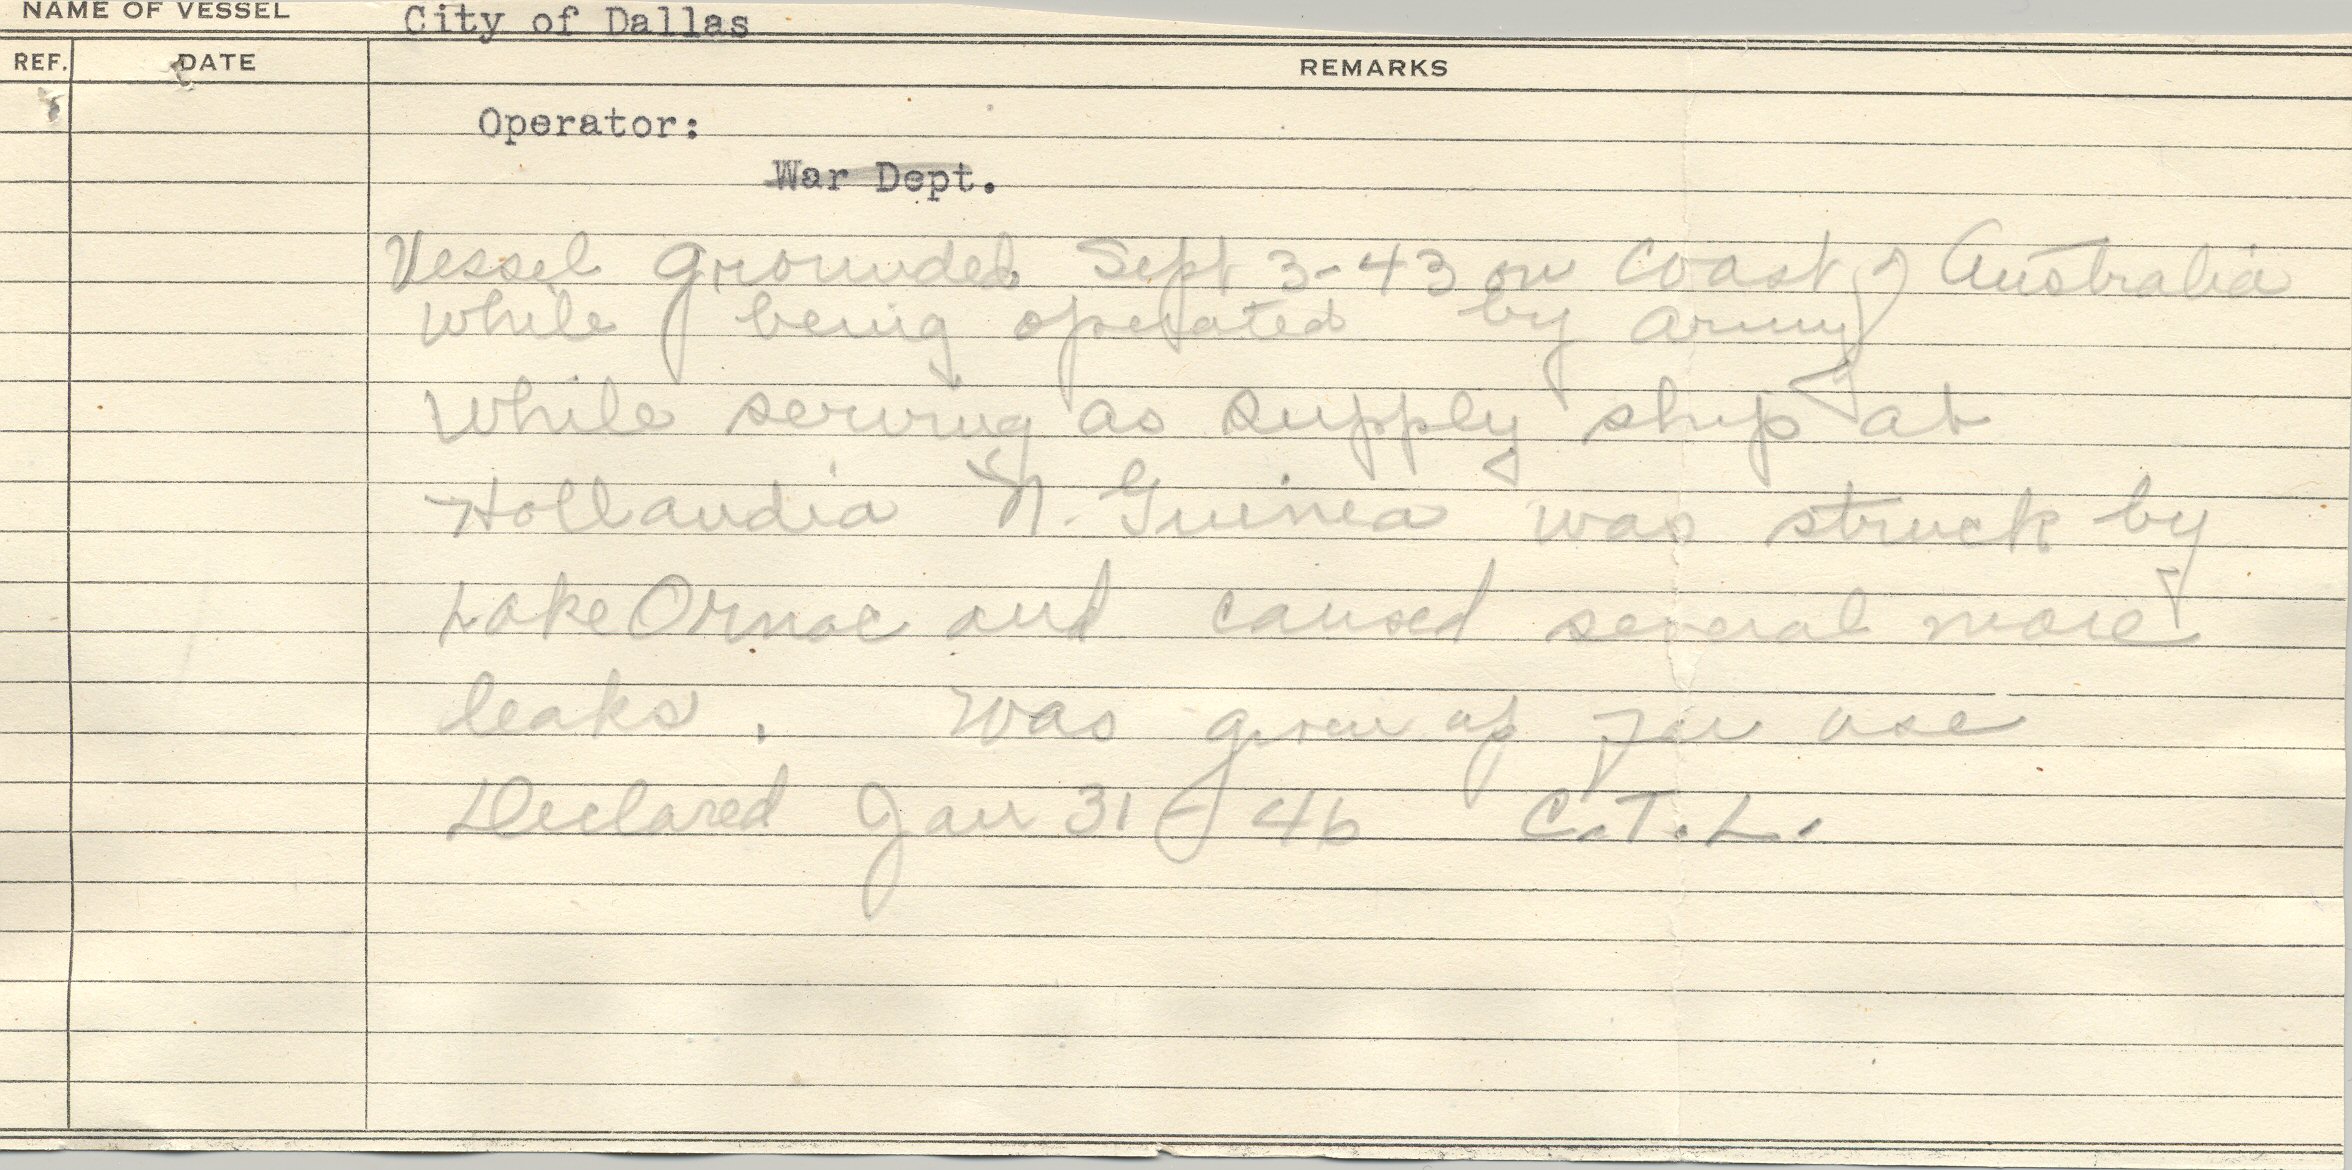 NAME OF VESSEL City of Dallas
REF. DATE REMARKS
Operator:
War Dept.
Vessel grounded Sept 3-43 on Coast of Australia
while being operated by Army
While serving as supply ship at
Hollandia N. Guinea was struck by
Lake Ormoc and caused several more
leaks. Was given up for use
Declared Jan 31-46 C.T.L.